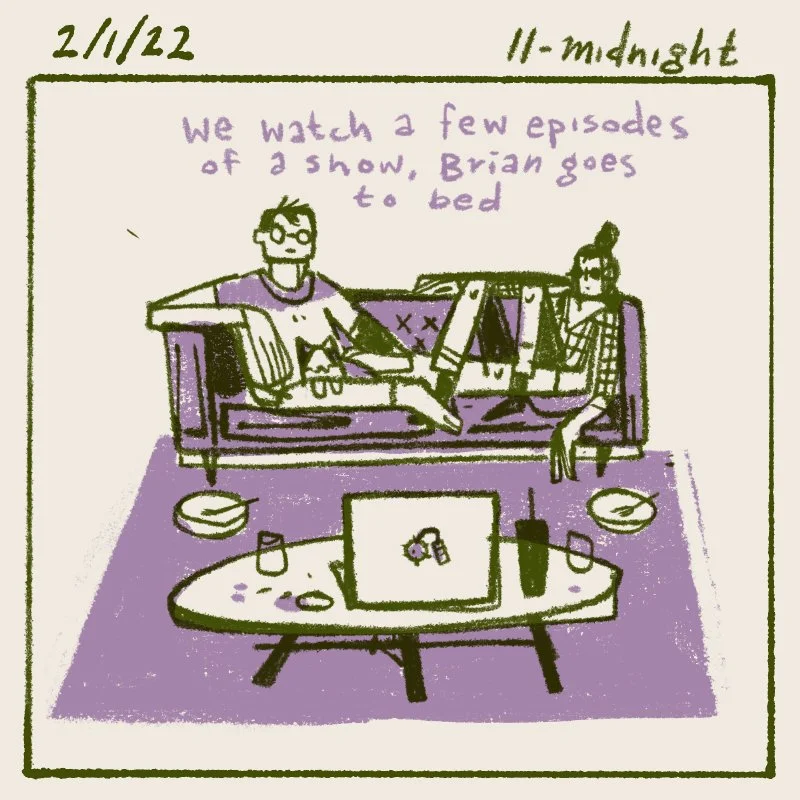 2/1/22
11-midnight
We watch a few episodes
of a show, Brian goes
to bed